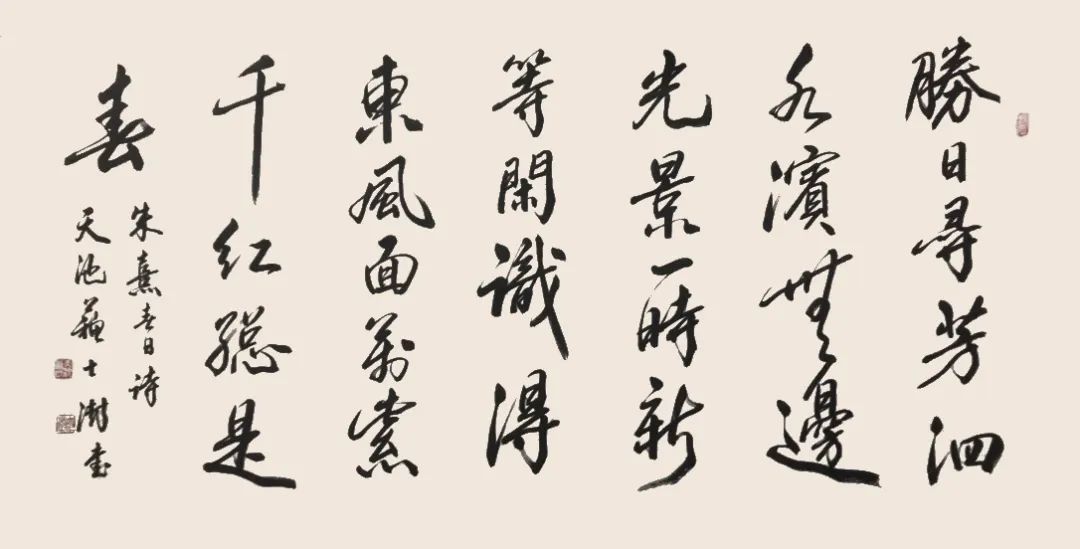 勝日尋芳泗
水濱無邊
光景一時新
等閑識得
東風面萬紫
千紅總是
春
朱熹春日詩
天池蘇士澍書